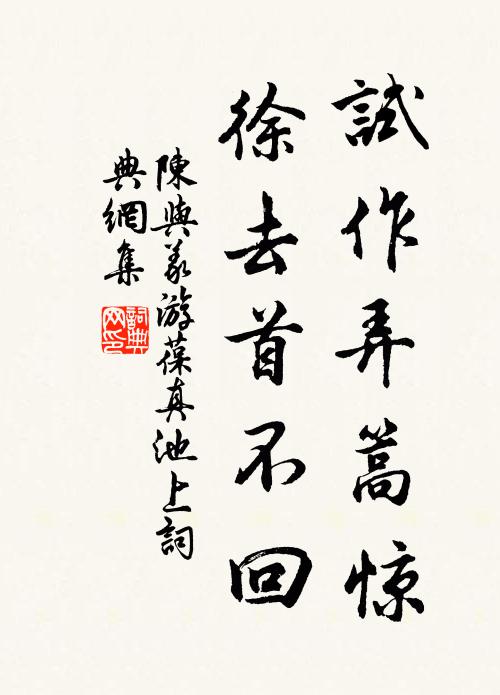 試作弄篙惊
徐去首不回
陳與義游葆真池上詞
典網集
詞典
网印